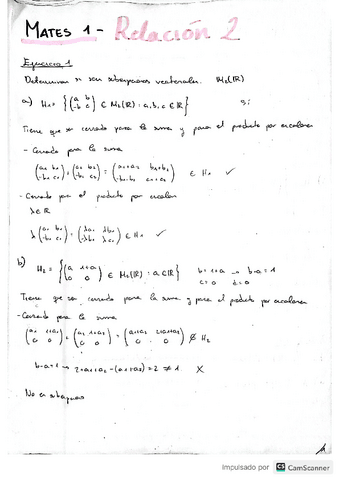 MATES 1 - Relación 2
Ejercicio 1
Determinar si son subespacios vectoriales. M₂(ℝ)
a) H₁ = {(a b; -b c) ∈ M₂(ℝ) : a, b, c ∈ ℝ} Si
Tiene que ser cerrado para la suma y para el producto por escalares
- Cerrado para la suma
(a₁ b₁; -b₁ c₁) + (a₂ b₂; -b₂ c₂) = (a₁+a₂ b₁+b₂; -b₁-b₂ c₁+c₂) ∈ H₁ ✓
- Cerrado por el producto por escalar
λ ∈ ℝ
λ (a₁ b₁; -b₁ c₁) = (λa₁ λb₁; -λb₁ λc₁) ∈ H₁ ✓
b) H₂ = {(a 1+a; 0 0) ∈ M₂(ℝ) : a ∈ ℝ} b = 1+a → b-a = 1
c = 0 d = 0
Tiene que ser cerrado para la suma y para el producto por escalares
- Cerrado para la suma
(a₁ 1+a₁; 0 0) + (a₂ 1+a₂; 0 0) = (a₁+a₂ 2+a₁+a₂; 0 0) ∉ H₂
b-a=1 → 2+a₁+a₂-(a₁+a₂)=2 ≠ 1 X
No es subespacio
Impulsado por CS CamScanner